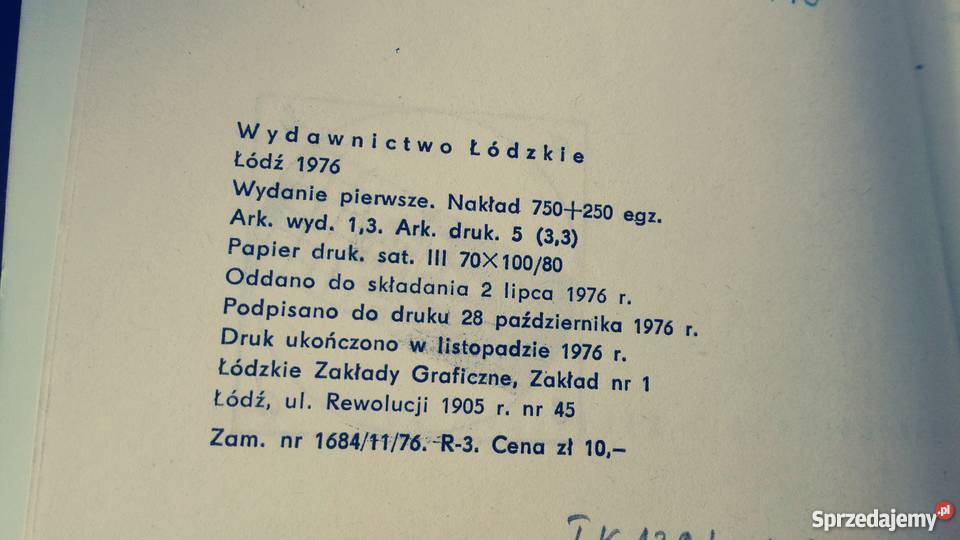 Wydawnictwo Łódzkie
Łódź 1976
Wydanie pierwsze. Nakład 750+250 egz.
Ark. wyd. 1,3. Ark. druk. 5 (3,3)
Papier druk. sat. III 70×100/80
Oddano do składania 2 lipca 1976 r.
Podpisano do druku 28 października 1976 r.
Druk ukończono w listopadzie 1976 r.
Łódzkie Zakłady Graficzne, Zakład nr 1
Łódź, ul. Rewolucji 1905 r. nr 45
Zam. nr 1684/11/76. R-3. Cena zł 10,–
Sprzedajemy.pl